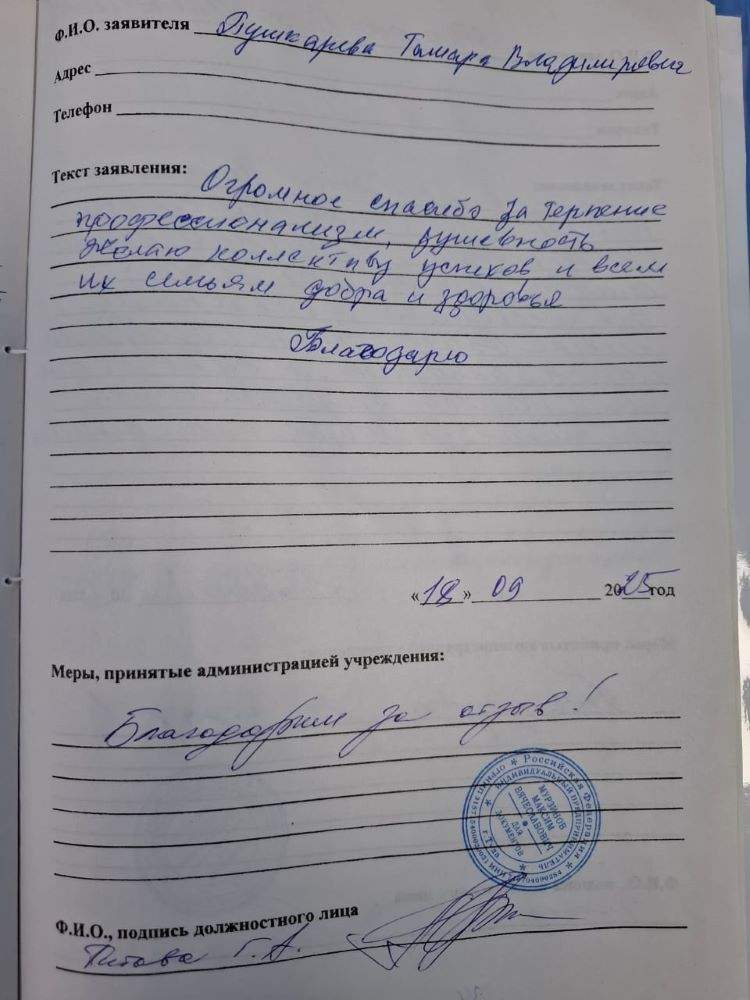 Ф.И.О. заявителя Пушкарева Тамара Владимирович
Адрес
Телефон
Текст заявления:
Огромное спасибо за терпение
профессионализм, душевность
Желаю коллективу успехов и всем
их семьям добра и здоровья
Благодарю
«18» 09 2025 год
Меры, принятые администрацией учреждения:
Благодарим за отзыв!
Российская Федерация
ИНДИВИДУАЛЬНЫЙ ПРЕДПРИНИМАТЕЛЬ
МУРЗИНОВ
МАКСИМ
ВЯЧЕСЛАВОВИЧ
ДЛЯ
ДОКУМЕНТОВ
г. Тула
Ф.И.О., подпись должностного лица
Титова Г. А.